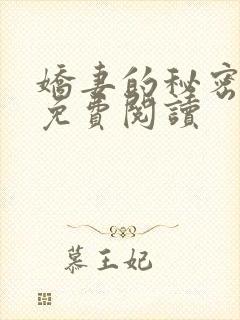 嬌妻的秘密
免費閱讀
慕王妃